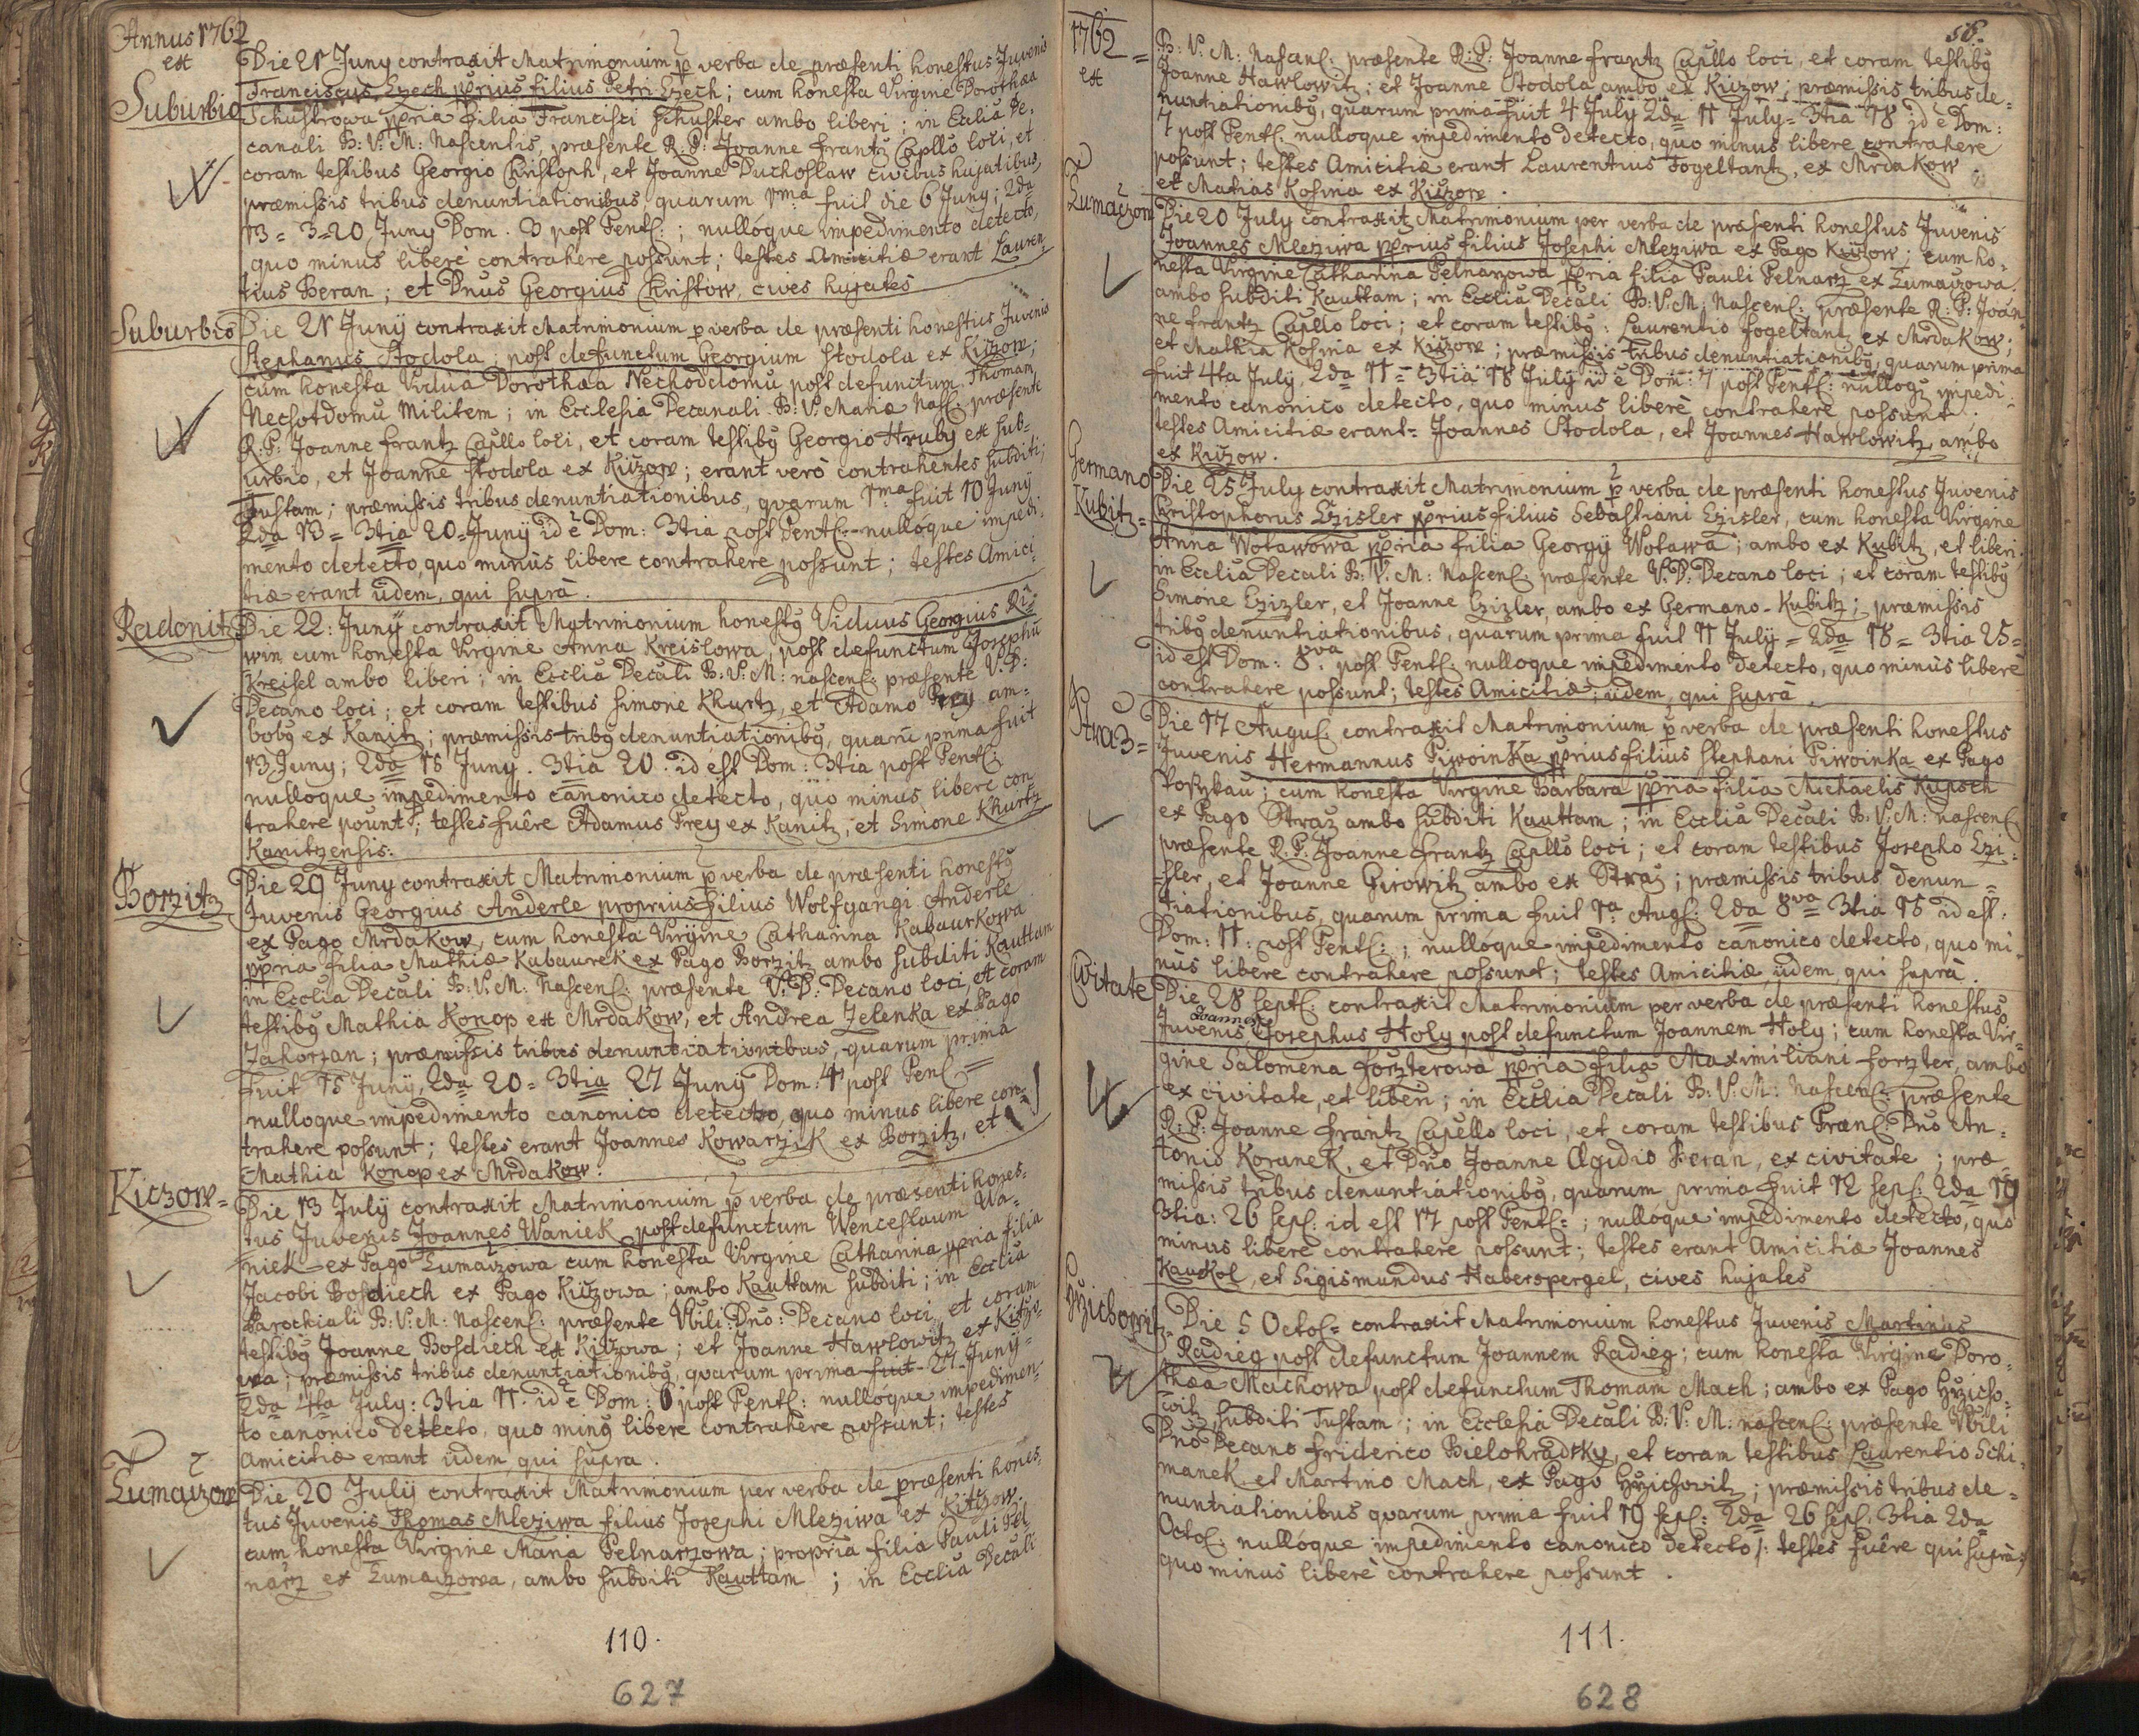 Annus 1762
ex
Suburbio
Die 21 Juny contraxit Matrimonium p verba de præsenti honestus Juvenis
Franciscus Czech pprius filius Petri Czech; cum honesta Virgine Dorothæa
Schustrowa ppria filia Francisci Schuster ambo liberi; in Ecclia De-
canali B: V: M: Nascentis, præsente R: P: Joanne Frantz Capllo loci, et
coram testibus Georgio Christoph, et Joanne Duchoslaw civibus hujatibus,
præmissis tribus denuntiationibus, quarum 1ma fuit die 6 Juny; 2da
13 = 3 = 20 Juny Dom. 3 post Pent: ; nulloque impedimento detecto,
quo minus liberè contrahere possunt; testes Amicitiæ erant Lauren-
tius Beran; et Dnus Georgius Christow, cives hujates
Suburbio
Die 21 Junÿ contraxit Matrimonium p verba de præsenti honestus Juvenis
Stephanus Stodola; post defunctum Georgium Stodola ex Kiczow;
cum honesta Vidua Dorothæa Nechoddomu post defunctum Thomam
Nechotdomu Militem; in Ecclesia Decanali B: V: Mariæ Nasc: præsente
R: P: Joanne Frantz Capllo loci, et coram testibg Georgio Hruby ex Sub-
urbio, et Joanne Stodola ex Kiczow; erant verò contrahentes subditi;
Tustam; præmissis tribus denuntiationibus, quarum 1ma fuit 10 Junÿ
2da 13 = 3tia 20 = Junÿ id è Dom: 3tia post Pent: nulloque impedi-
mento detecto, quo minùs libere contrahere possunt; testes Amici-
tiæ erant iidem, qui suprà.
Radonitz
Die 22: Junÿ contraxit Matrimonium honestg Viduus Georgius Ri-
win cum honesta Virgine Anna Kreislowa, post defunctum Josephū
Kreisel ambo liberi; in Ecclia Decali B: V: M: nascen: præsente V: D:
Decano loci; et coram testibus Simone Khurtz, et Adamo Frey am-
bobg ex Kanitz; præmissis tribg denuntiationibg, quarū prima fuit
13 Juny; 2da 15 Juny. 3tia 20. id est Dom: 3tia post Pent:
nulloque impedimento canonico detecto, quo minus libere con-
trahere pount; testes fuêre Adamus Frey ex Kanitz, et Simone Khurtz
Kanitzensis.
Borzitz
Die 29 Juny contraxit Matrimonium p verba de præsenti honestg
Juvenis Georgius Anderle proprius filius Wolfgangi Anderle
ex Pago Mrdakow, cum honesta Virgine Catharina Kabaurkowa
ppria filia Mathiæ Kabaurek ex Pago Borzitz ambo subditi Kauttam
in Ecclia Decali B: V: M: Nascen: præsente V: D: Decano loci, et coram
testibg Mathia Konop ex Mrdakow, et Andrea Zelenka ex Pago
Zahorzan; præmissis tribus denuntiationibus, quarum prima
fuit 15 Junÿ, 2da 20 = 3tia 27 Junÿ Dom: 4 post Pen: =
nulloque impedimento canonico detecto, quo minus libere con-
trahere possunt; testes erant Joannes Kowarzik ex Borzitz, et
Mathia Konop ex Mrdakow.
Kiczow =
Die 13 Julÿ contraxit Matrimonium p verba de præsenti hones-
tus Juvenis Joannes Waniek post defunctum Wenceslaum Wa-
niek ex Pago Lumaizowa cum honesta Virgine Catharina ppria filia
Jacobi Bosdiech ex Pago Kiczowa; ambo Kauttam subditi; in Ecclia
Parochiali B: V: M: Nascen: præsente Vbili: Dno: Decano loci, et coram
testibg Joanne Bosdiech ex Kiczowa; et Joanne Hawlowitz ex Kitzo-
wa; præmissis tribus denuntiationibg, quarum prima fuit 27 Juny =
2da 4ta July: 3tia 11. id è Dom: 6 post Pent: nulloque impedimen-
to canonico detecto, quo ming libere contrahere possunt; testes
Amicitiæ erant iidem qui supra.
Lumaizow
Die 20 Julÿ contraxit Matrimonium per verba de præsenti hones-
tus Juvenis Thomas Mleziwa filius Josephi Mleziwa ex Kitzow.
cum honesta Virgine Maria Pelnarzowa; propria filia Pauli Pel-
narz ex Lumaizowa, ambo subditi Kauttam; in Ecclia Decali
110.
627
1762 =
ex
58.
B: V: M: Nascen: præsente R: P: Joanne Frantz Capllo loci, et coram testibg
Joanne Hawlowitz; et Joanne Stodola ambo ex Kiczow; præmissis tribus de-
nuntiationibg, quarum prima fuit 4 July 2da 11 July = 3tia 18 id è Dom:
7 post Pent: nulloque impedimento detecto, quo minus libere contrahere
possunt; testes Amicitiæ erant Laurentius Fogeltantz, ex Mrdakow.
et Matias Kosina ex Kiczow.
Lumaizow
Die 20 July contraxit Matrimonium per verba de præsenti honestus Juvenis
Joannes Mleziwa pprius filius Josephi Mleziwa ex Pago Kiczow; cum ho-
nesta Virgine Catharina Pelnarzowa ppria filia Pauli Pelnarz ex Lumaizowa.
ambo subditi Kauttam; in Ecclia Decali B: V: M: Nascen: præsente R: P: Joan-
ne Frantz Capllo loci; et coram testibg: Laurentio Fogeltantz ex Mrdakow;
et Mathia Kosina ex Kiczow; præmissis tribus denuntiationibg, quarum prima
fuit 4ta July. 2da 11 = 3tia 18 July id è Dom: 7 post Pent: nulloqz impedi-
mento canonico detecto, quo minus liberè contrahere possunt.
testes Amicitiæ erant = Joannes Stodola, et Joannes Hawlowitz, ambo
ex Kiczow.
Germano
Kubitz =
Die 25 July contraxit Matrimonium p verba de præsenti honestus Juvenis
Christophorus Czisler pprius filius Sebastiani Czisler, cum honesta Virgine
Anna Wotawowa ppria filia Georgÿ Wotawa; ambo ex Kubitz, et liberi;
in Ecclia Decali B: V: M: Nascen: præsente V: D: Decano loci; et coram testibg
Simone Czizler, et Joanne Czizler, ambo ex Germano-Kubitz; præmissis
tribg denuntiationibus, quarum prima fuit 11 Julÿ = 2da 18 = 3tia 25 =
id est Dom: 8va post Pent: nulloque impedimento detecto, quo minùs liberè
contrahere possunt; testes Amicitiæ; iidem, qui suprà.
Straz =
Die 17 Augus: contraxit Matrimonium p verba de præsenti honestus
Juvenis Hermannus Piwoinka pprius filius Stephani Piwoinka ex Pago
Poszkau; cum honesta Virgine Barbara ppria filia Michaelis Kupsch
ex Pago Straz ambo subditi Kauttam; in Ecclia Decali B: V: M: nascen:
præsente R: P: Joanne Frantz Capllo loci; et coram testibus Josepho Czi-
sler, et Joanne Girowitz ambo ex Straz; præmissis tribus denun =
tiationibus, quarum prima fuit 1a Aug: 2da 8va 3tia 15 id est:
Dom: 11. post Pent: ; nulloque impedimento canonico detecto, quo mi-
nùs libere contrahere possunt; testes Amicitiæ iidem qui suprà.
Civitate
Die 28 Sept: contraxit Matrimonium per verba de præsenti honestus
Joannes
Juvenis Josephus Holy post defunctum Joannem Holy; cum honesta Vir-
gine Salomena Forzterowa ppria filia Maximiliani Forzter, ambo
ex civitate, et liberi; in Ecclia Decali B: V: M: Nascen: præsente
R: P: Joanne Frantz Capello loci, et coram testibus Præn: Dno An-
tonio Koranek, et Dno Joanne Ægidio Beran, ex civitate; præ-
missis tribus denuntiationibg, quarum prima fuit 12 Sep: 2da 19
3tia: 26 Sep: id est 17 post Pent: ; nulloque impedimento detecto, quo
minus libere contrahere possunt; testes erant Amicitiæ Joannes
Kaukol, et Sigismundus Haberspergel, cives hujates
Die 5 Octo: contraxit Matrimonium honestus Juvenis Martinus
Radieg post defunctum Joannem Radieg; cum honesta Virgine Doro-
thæa Machowa post defunctum Thomam Mach; ambo ex Pago Hrzicho-
wit, subditi Tustam; in Ecclesia Decali B: V: M: nascen: præsente Vbili
Dno Decano Friderico Bielohradsky, et coram testibus Laurentio Schi-
manek et Martino Mach, ex Pago Hrzichowitz; præmissis tribus de =
nuntiationibus quarum prima fuit 19 Sep: 2da 26 Sep: 3tia 2da
Octo: nulloque impedimento canonico detecto /: testes fuêre qui suprà:/
quo minus liberè contrahere possunt.
111.
628